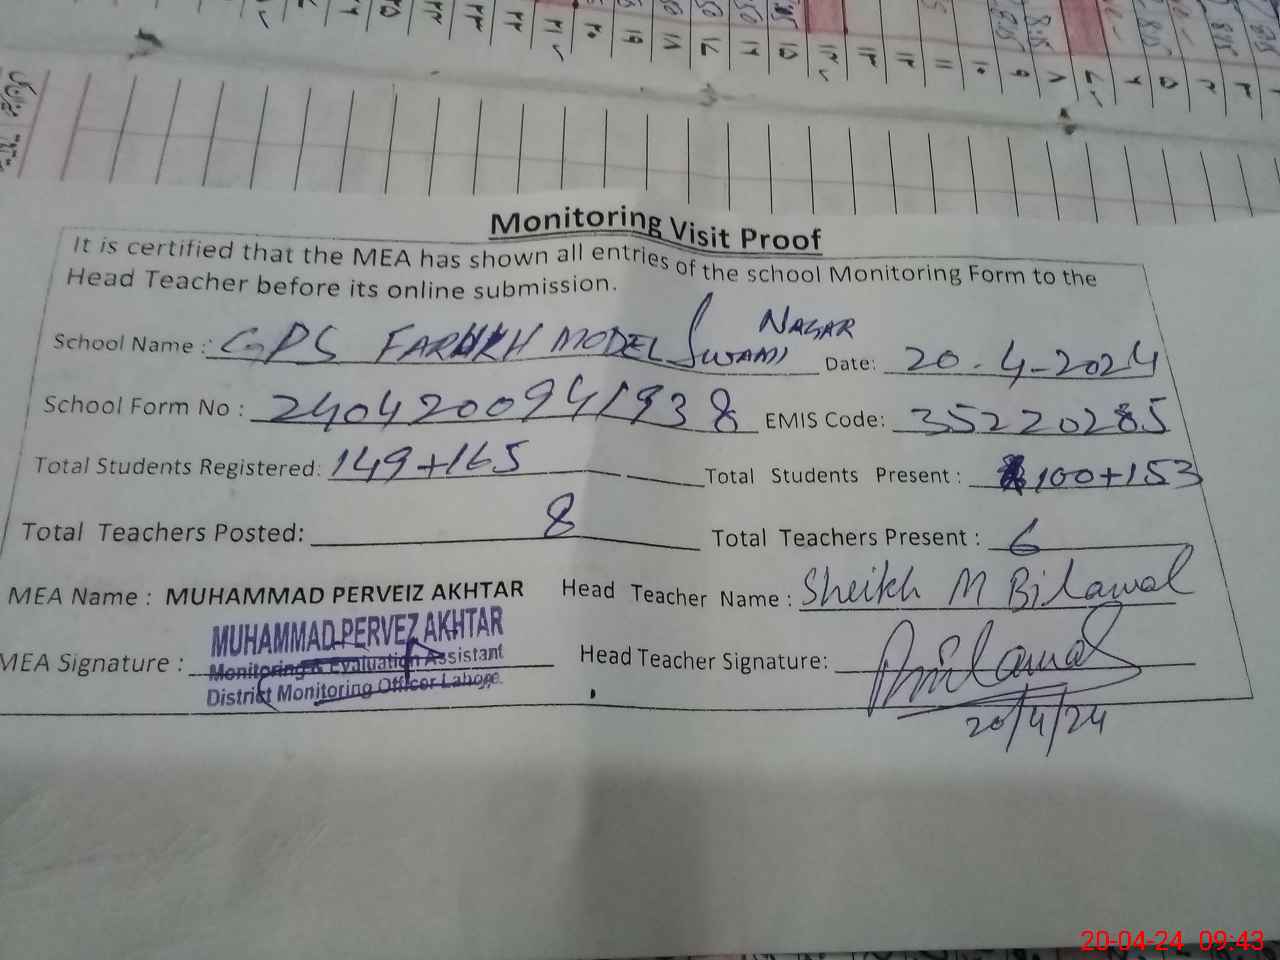 Monitoring Visit Proof
It is certified that the MEA has shown all entries of the school Monitoring Form to the
Head Teacher before its online submission.
School Name : GPS FARUKH MODEL SWAMI NAGAR Date: 20-4-2024
School Form No : 2404200941938 EMIS Code: 35220285
Total Students Registered: 149+165 Total Students Present : 100+153
Total Teachers Posted: 8 Total Teachers Present : 6
MEA Name : MUHAMMAD PERVEIZ AKHTAR Head Teacher Name : Sheikh M Bilawal
MEA Signature : Head Teacher Signature: Bilawal
MUHAMMAD PERVEZ AKHTAR
Monitoring & Evaluation Assistant
District Monitoring Officer Lahore.
20/4/24
20-04-24 09:43